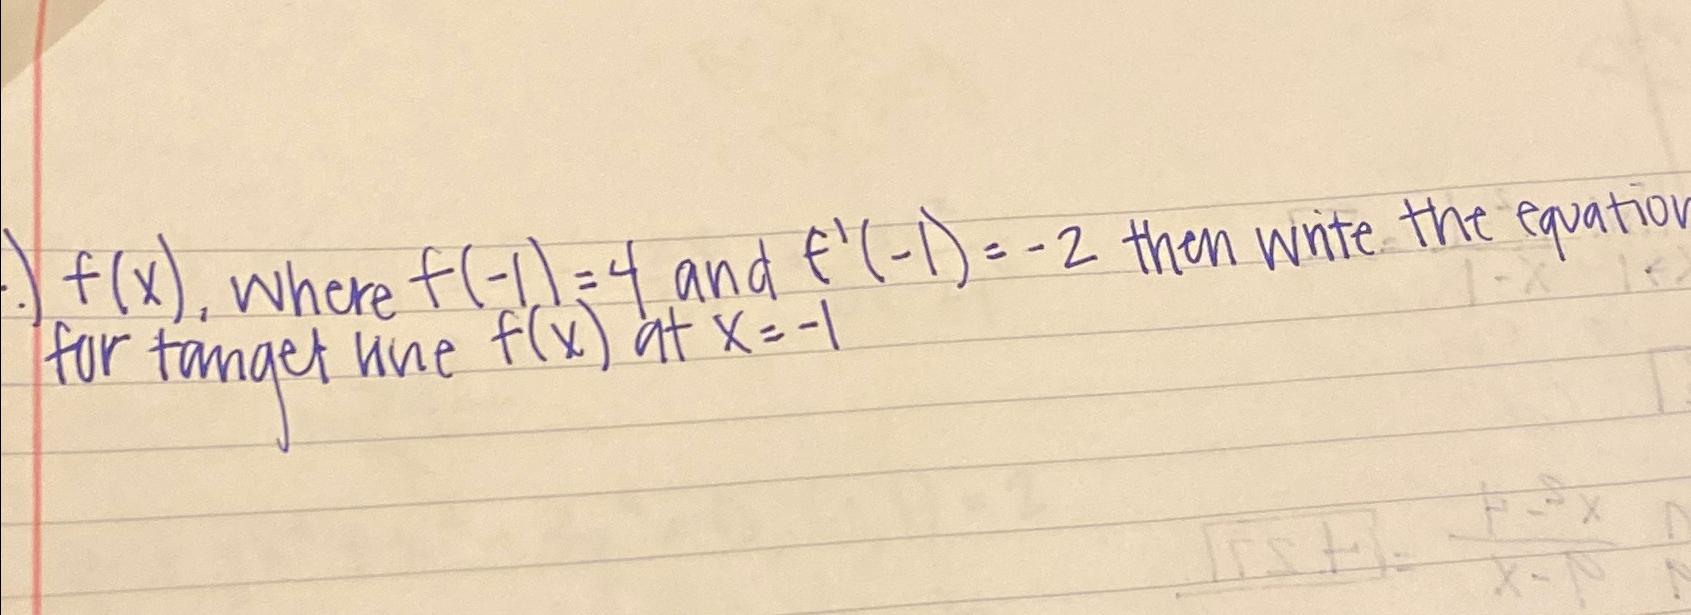 .) f(x), where f(-1)=4 and f'(-1)=-2 then write the equation
for tanget line f(x) at x=-1